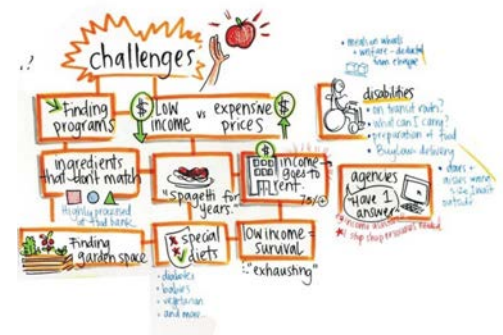 ..?
challenges
Finding
programs
$
LOW
income
vs
expensive
prices
$
ingredients
that don't match
Highly processed
at food bank
"spagetti for
years."
$
income →
goes to
rent.
75%
Finding
garden space
special
diets
• diabetes
• babies
• vegetarian
• and more...
low income =
survival
:"exhausting"
• meals on wheels
• welfare - deducted
from cheque
disabilities
• on transit route?
• what can I carry?
• preparation of food
• Buylow delivery
• doors +
aisles
size, I wait
outside
agencies
Have 1
answer
* income assistance
* 1 stop shop resources needed